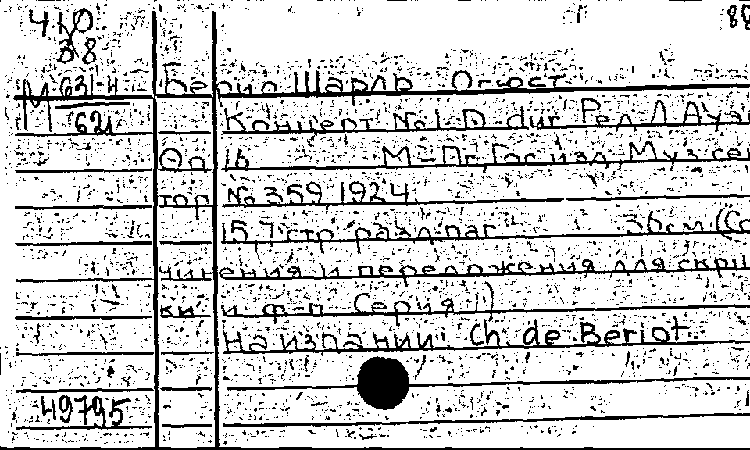 4.10.
38
88
М 631-4
621
Берио Шарль Огюст
Концерт №1 D-dur Ред. Л. Ауэ
Оп. 16 М-Пг, Гос. изд. Муз. се
тор № 359, 1924
15, 7 стр. разд. паг. 36 см (Со
чинения и переложения для скрип
ки и ф-п Серия I)
На издании: Ch. de Beriot.
49795